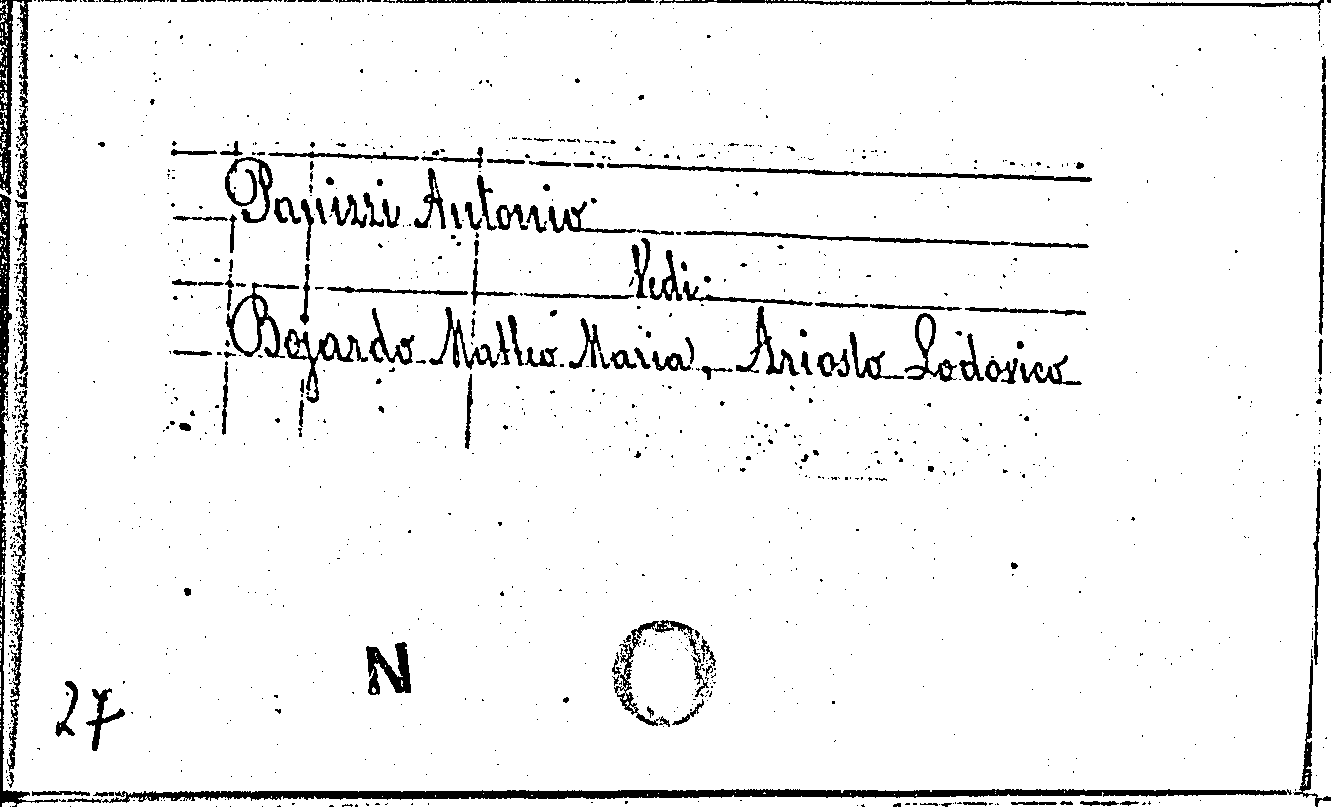 Panizzi Antonio
Vedi:
Bojardo Matteo Maria, Ariosto Lodovico
N
27